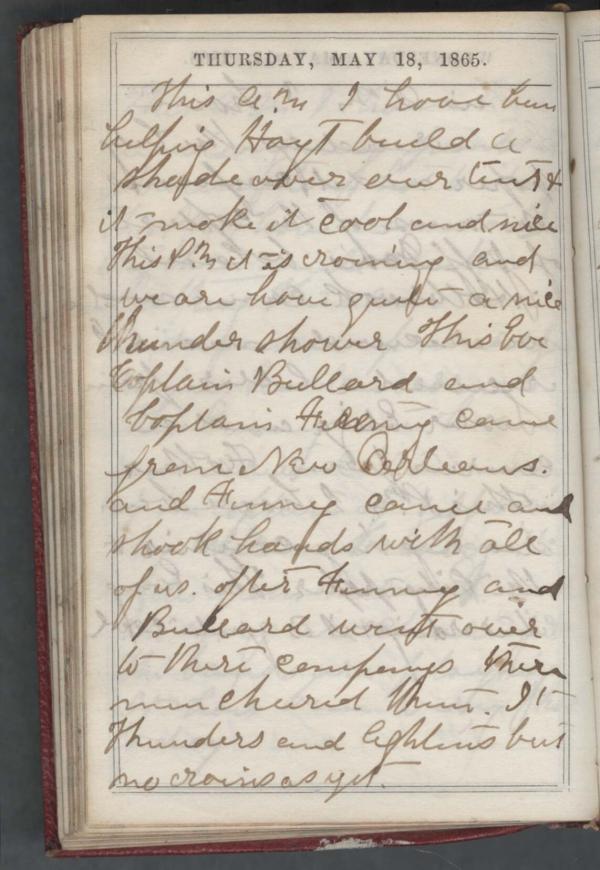 THURSDAY, MAY 18, 1865.
This A.M I have ben
helping Hoyt build a
shade over our tent &
it make it cool and nice
This P.M it is raining and
we are have quite a nice
thunder shower This Eve
Captain Bullard and
Captain Finny came
from New Orleans.
and Finny came and
shook hands with all
of us. after Finny and
Bullard went over
to there companys there
men cheered them. It
Thunders and lightins but
no rains as yet.